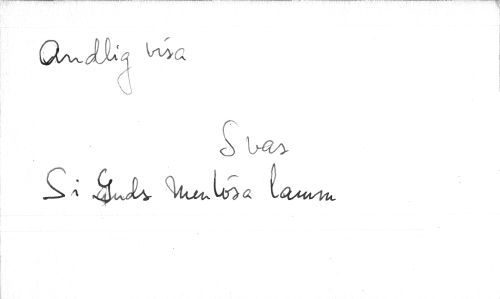 Andlig visa
Svas
Si Guds menlösa lamm